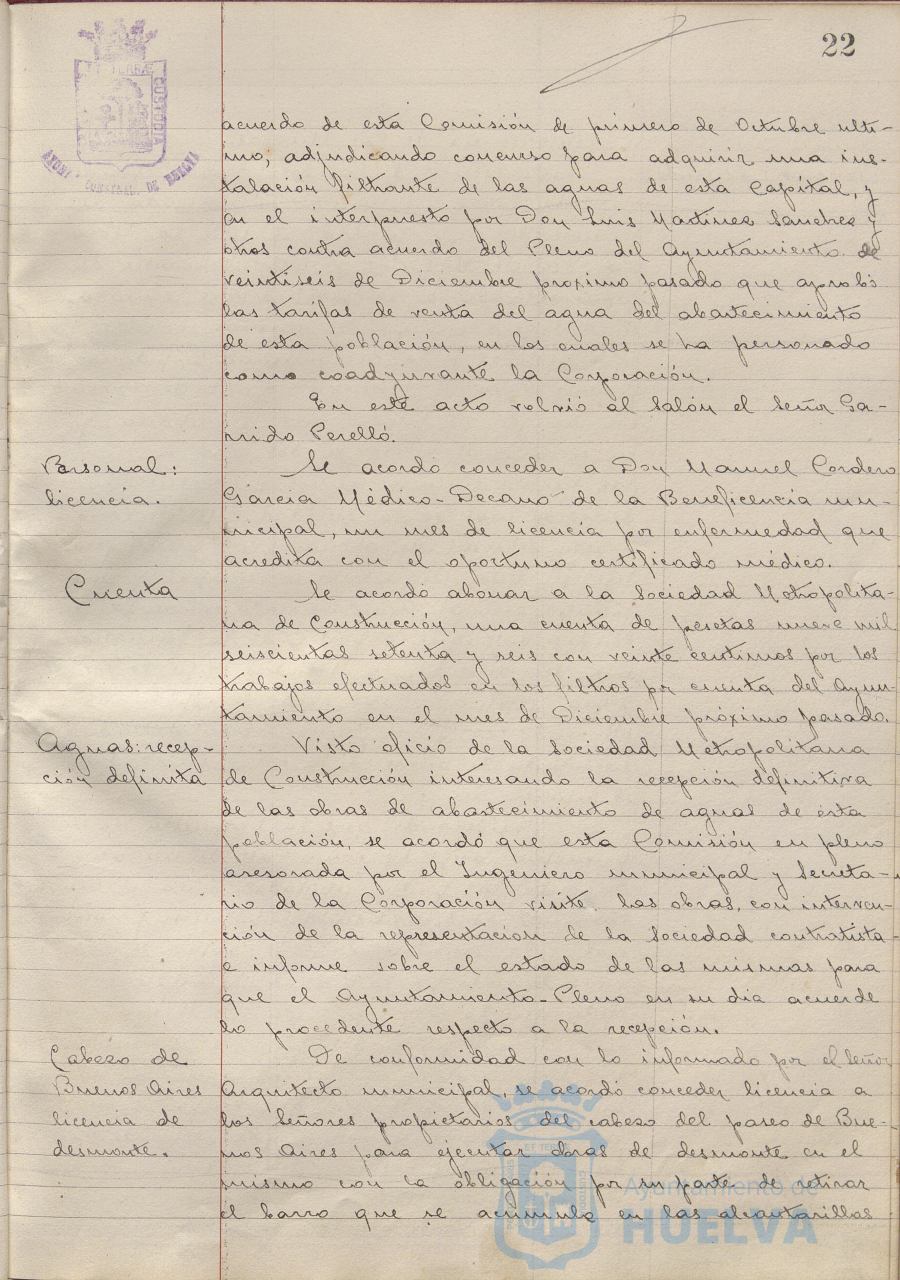 22
acuerdo de esta Comisión de primero de Octubre ulti-
mo, adjudicando concurso para adquirir una ins-
talación filtrante de las aguas de esta Capital, y
en el interpuesto por Don Luis Martinez Sanchez y
otros contra acuerdo del Pleno del Ayuntamiento de
veintiseis de Diciembre proximo pasado que aprobó
las tarifas de venta del agua del abastecimiento
de esta población, en los cuales se ha personado
como coadyuvante la Corporación.
En este acto volvió al Salón el Señor Ga-
rrido Perelló.
Personal:
licencia.
Se acordó conceder a Don Manuel Cordero
García Médico-Decano de la Beneficencia mu-
nicipal, un mes de licencia por enfermedad que
acredita con el oportuno certificado médico.
Cuenta
Se acordó abonar a la Sociedad Metropolita-
na de Construcción, una cuenta de pesetas nueve mil
seiscientas setenta y seis con veinte centimos por los
trabajos efectuados en los filtros por cuenta del Ayun-
tamiento en el mes de Diciembre próximo pasado.
Aguas: recep-
ción definita
Visto oficio de la Sociedad Metropolitana
de Construcción interesando la recepción definitiva
de las obras de abastecimiento de aguas de esta
población, se acordó que esta Comisión en pleno
asesorada por el Ingeniero municipal y Secreta-
rio de la Corporación visite las obras, con interven-
ción de la representación de la Sociedad contratista
e informe sobre el estado de las mismas para
que el Ayuntamiento-Pleno en su dia acuerde
lo procedente respecto a la recepción.
Cabezo de
Buenos Aires
licencia de
desmonte.
De conformidad con lo informado por el Señor
Arquitecto municipal, se acordó conceder licencia a
los Señores propietarios del cabezo del paseo de Bue-
nos Aires para ejecutar obras de desmonte en el
mismo con la obligación por su parte de retirar
el barro que se acumule en las alcantarillas
Ayuntamiento de
HUELVA